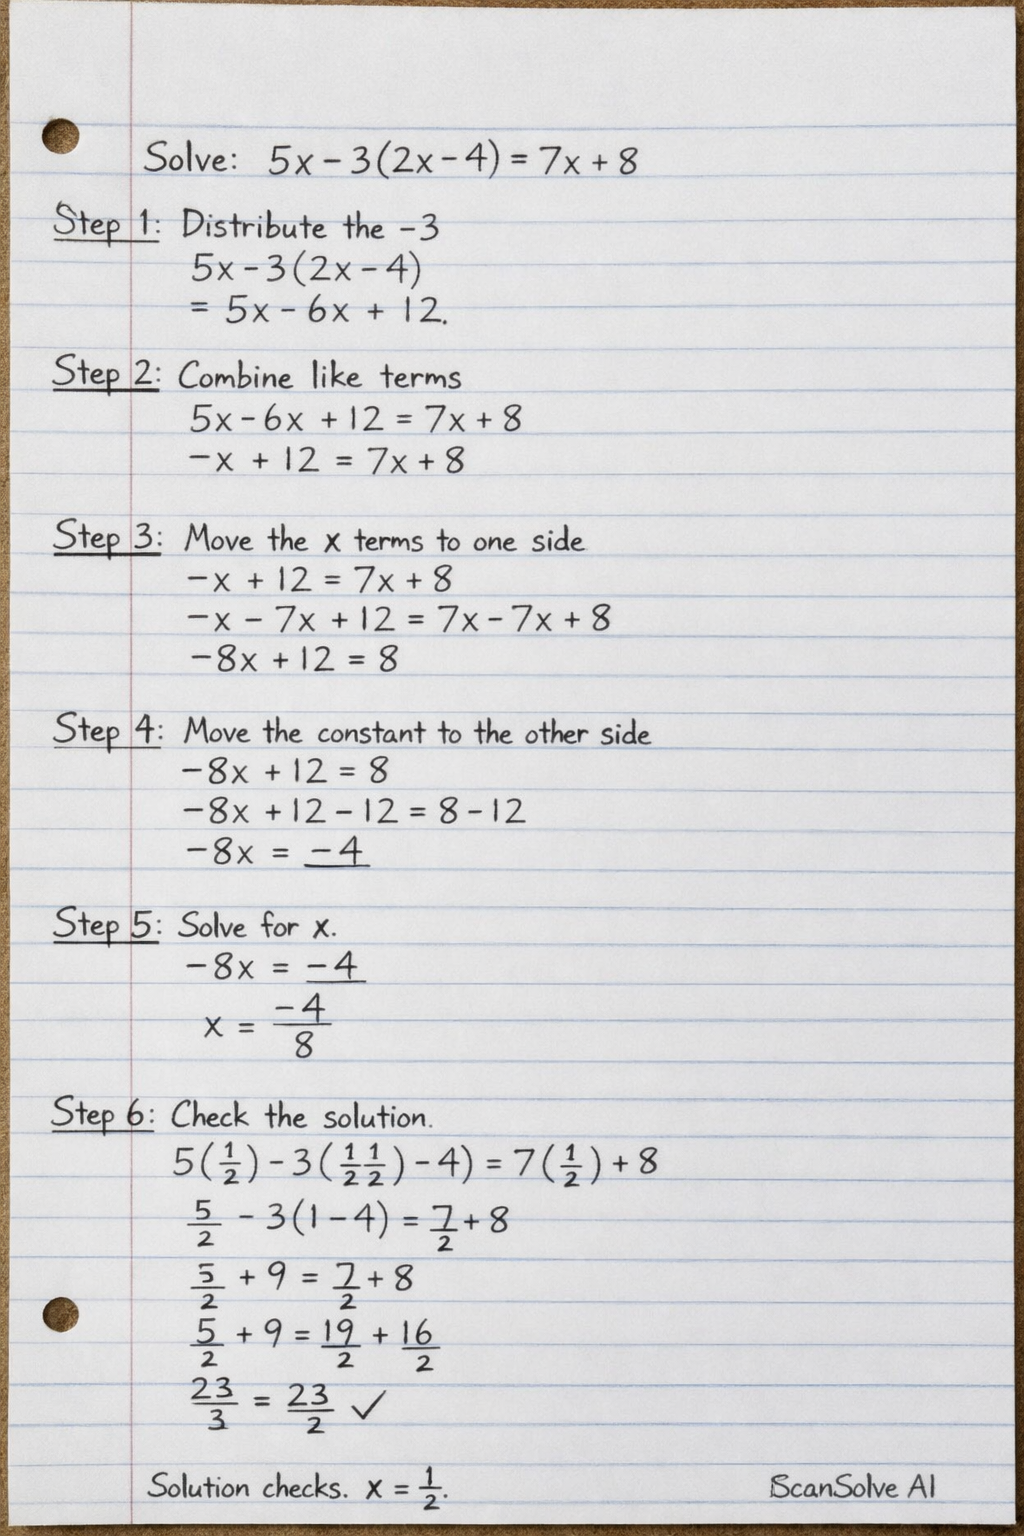 Solve: 5x - 3(2x - 4) = 7x + 8
Step 1: Distribute the -3
5x - 3(2x - 4)
= 5x - 6x + 12.
Step 2: Combine like terms
5x - 6x + 12 = 7x + 8
-x + 12 = 7x + 8
Step 3: Move the x terms to one side
-x + 12 = 7x + 8
-x - 7x + 12 = 7x - 7x + 8
-8x + 12 = 8
Step 4: Move the constant to the other side
-8x + 12 = 8
-8x + 12 - 12 = 8 - 12
-8x = -4
Step 5: Solve for x.
-8x = -4
x = -4/8
Step 6: Check the solution.
5(1/2) - 3(1/2 1/2) - 4) = 7(1/2) + 8
5/2 - 3(1 - 4) = 7/2 + 8
5/2 + 9 = 7/2 + 8
5/2 + 9 = 19/2 + 16/2
23/3 = 23/2 ✓
Solution checks. x = 1/2.
ScanSolve AI